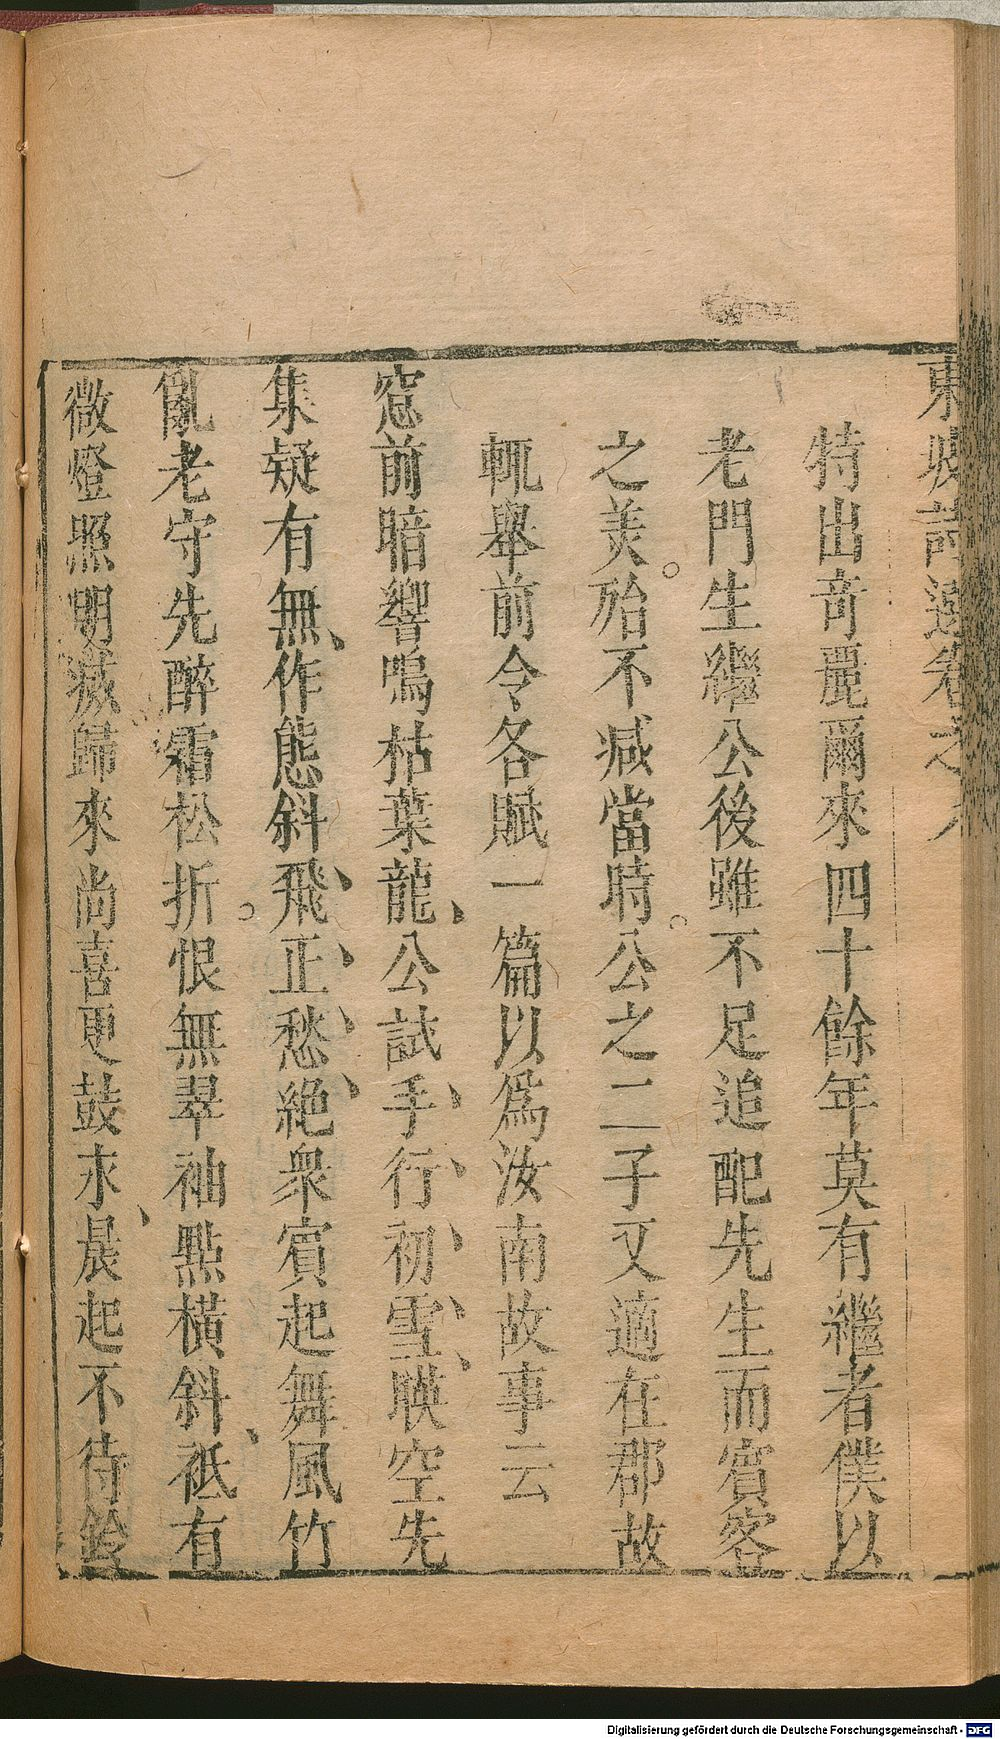 東坡詩選卷之
特出奇麗爾來四十餘年莫有繼者僕以
老門生繼公後雖不足追配先生而賓客
之美殆不減當時公之二子又適在郡故
輒舉前令各賦一篇以爲汝南故事云
窓前暗響鳴枯葉龍公試手行初雪映空先
集疑有無作態斜飛正愁絶衆賓起舞風竹
亂老守先醉霜松折恨無翠袖點橫斜袛有
微燈照明滅歸來尚喜更鼓永晨起不待鈴
Digitalisierung gefördert durch die Deutsche Forschungsgemeinschaft - DFG